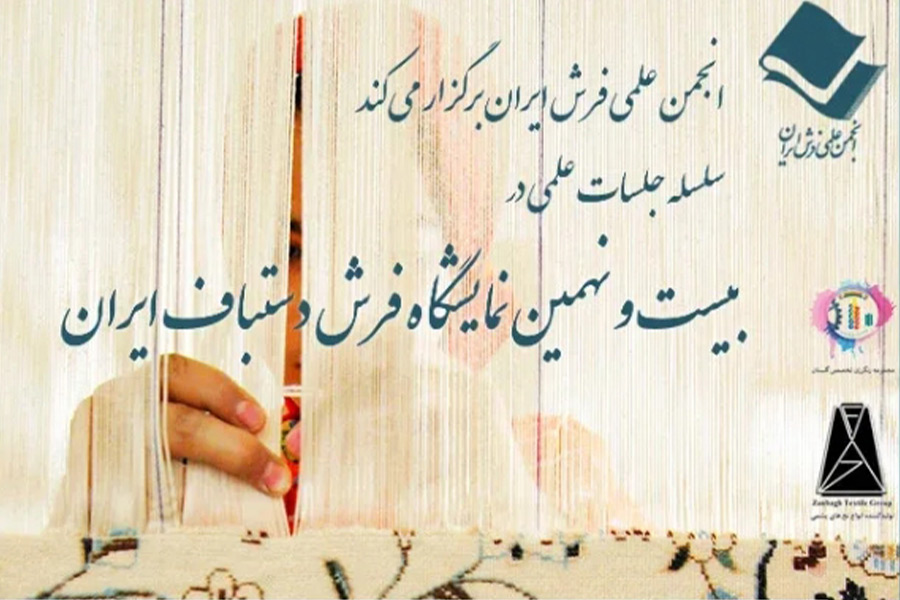 انجمن علمی فرش ایران برگزار می کند
سلسله جلسات علمی در
بیست و نهمین نمایشگاه فرش دستباف ایران
انجمن علمی فرش ایران
مجموعه رنگرزی تخصصی گلستان
Zanbagh Textile Group
تولیدکننده انواع نخ های پشمی